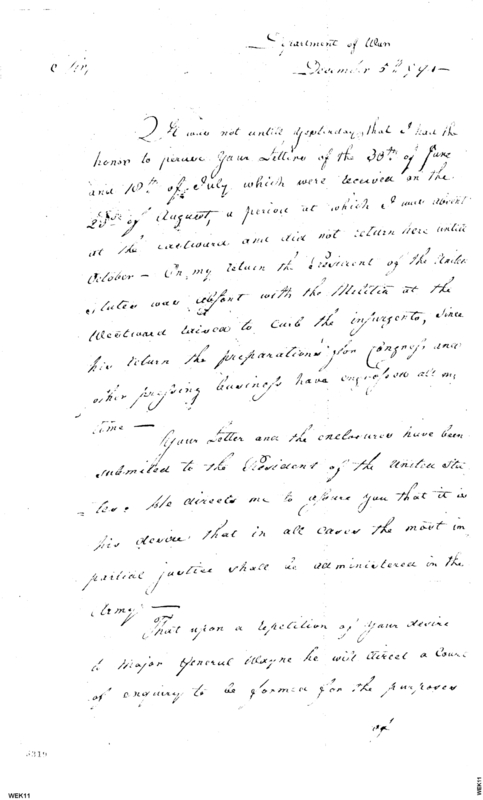 Department of War
Sir,
December 5th 1794—
It was not untill yesterday, that I had the
honor to peruse your Letters of the 30th of June
and 10th of July which were received on the
23rd of August, a period at which I was absent
at the eastward and did not return here until
October — On my return the President of the United
States was absent with the Militia at the
Westward raised to curb the insurgents, since
his return the preparations for Congress and
other pressing business have engrossed all my
time —
Your Letter and the enclosures have been
submited to the President of the United Sta
=tes. He directs me to assure you that it is
his desire that in all cases the most im
partial justice shall be administered in the
Army —
That upon a repetition of your desire
to Major General Wayne he will direct a Court
of enquiry to be formed for the purposes
of
WEK11
WEK11